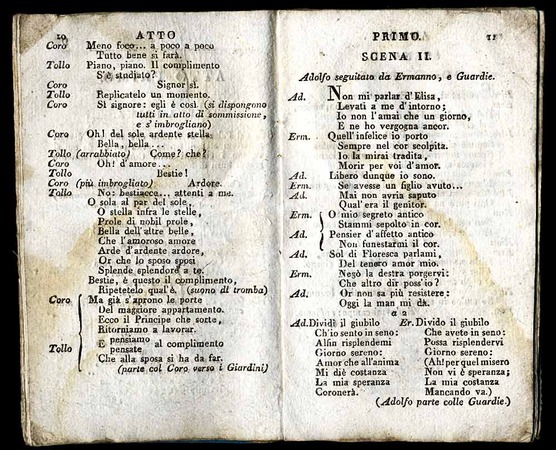 10 ATTO
Coro Meno foco... a poco a poco
Tutto bene si farà.
Tollo Piano, piano. Il complimento
S'è studiato?
Coro Signor sì.
Tollo Replicatelo un momento.
Coro Sì signore: egli è così. (si dispongono
tutti in atto di sommissione,
e s' imbrogliano)
Coro Oh! del sole ardente stella
Bella, bella...
Tollo (arrabbiato) Come? che?
Coro Oh! d'amore...
Tollo Bestie!
Coro (più imbrogliato) Ardore.
Tollo No: bestiacce... attenti a me.
O sola al par del sole,
O stella infra le stelle,
Prole di nobil prole,
Bella dell'altre belle,
Che l'amoroso amore
Arde d'ardente ardore,
Or che lo sposo sposi
Splende splendore a te.
Bestie, è questo il complimento,
Ripetetelo qual'è. (suono di tromba)
Coro Ma già s'aprono le porte
Del maggiore appartamento.
Ecco il Principe che sorte,
Ritorniamo a lavorar.
Tollo E pensiamo
pensate al complimento
Che alla sposa si ha da far.
(parte col Coro verso i Giardini)
PRIMO. 11
SCENA II.
Adolfo seguitato da Ermanno, e Guardie.
Ad. Non mi parlar d'Elisa,
Levati a me d'intorno;
Io non l'amai che un giorno,
E ne ho vergogna ancor.
Erm. Quell'infelice io porto
Sempre nel cor scolpita.
Io la mirai tradita,
Morir per voi d'amor.
Ad. Libero dunque io sono.
Erm. Se avesse un figlio avuto...
Ad. Mai non avria saputo
Qual'era il genitor.
Erm. O mio segreto antico
Stammi sepolto in cor.
Ad. Pensier d'affetto antico
Non funestarmi il cor.
Ad. Sol di Floresca parlami,
Del tenero amor mio.
Erm. Negò la destra porgervi:
Che altro dir poss'io?
Ad. Or non sa più resistere:
Oggi la man mi dà.
a 2
Ad. Divide il giubilo Er. Divido il giubilo
Ch'io sento in seno: Che avete in seno:
Alfin risplendemi Possa risplendervi
Giorno sereno: Giorno sereno:
Amor che all'anima (Ah! per quel misero
Mi diè costanza Non vi è speranza;
La mia speranza La mia costanza
Coronerà. Mancando va.)
(Adolfo parte colle Guardie.)